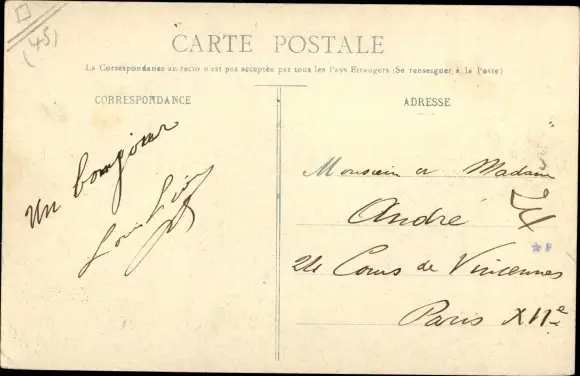 (45)
CARTE POSTALE
La Correspondance au recto n'est pas acceptée par tous les Pays Etrangers (Se renseigner à la Poste)
CORRESPONDANCE
Un bonjour
Louis
ADRESSE
Monsieur et Madame
André
24
24 Cours de Vincennes
Paris XIIe